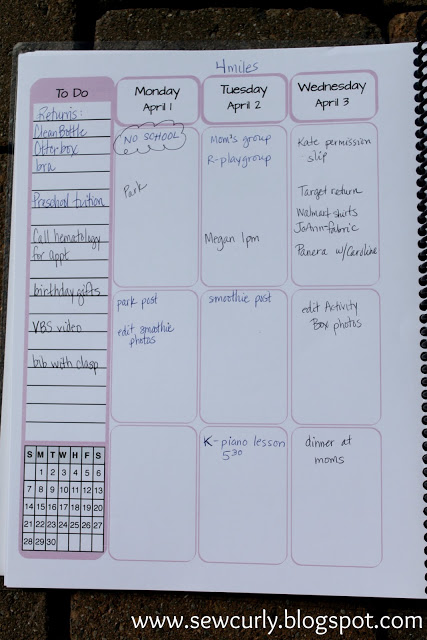 4miles
To Do
Returns:
CleanBottle
Otterbox
bra
Preschool tuition
Call hematology
for appt
birthday gifts
VBS video
bib with clasp
S M T W H F S
1 2 3 4 5 6
7 8 9 10 11 12 13
14 15 16 17 18 19 20
21 22 23 24 25 26 27
28 29 30
Monday
April 1
NO SCHOOL
Park
park post
edit smoothie
photos
Tuesday
April 2
Mom's group
R-playgroup
Megan 1pm
smoothie post
K-piano lesson
5:30
Wednesday
April 3
Kate permission
slip
Target return
Walmart shirts
JoAnn-fabric
Panera w/Caroline
edit Activity
Box photos
dinner at
moms
www.sewcurly.blogspot.com